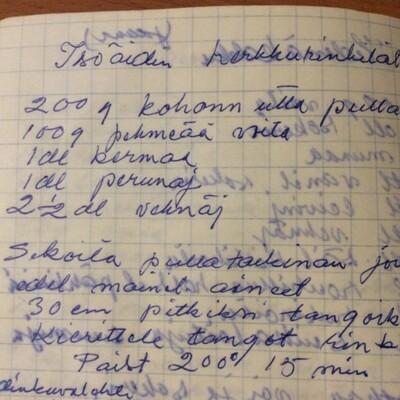 Isoäidin herkkurinkilät
200 g kohonnutta pulla
100g pehmeää voita
1 dl kermaa
1 dl perunaj
2 ½ dl vehnäj
Sekoita pullataikinan jo
edel mainit aineet
30 cm pitkiksi tangoik
Kierittele tangot rink
Paist 200° 15 min